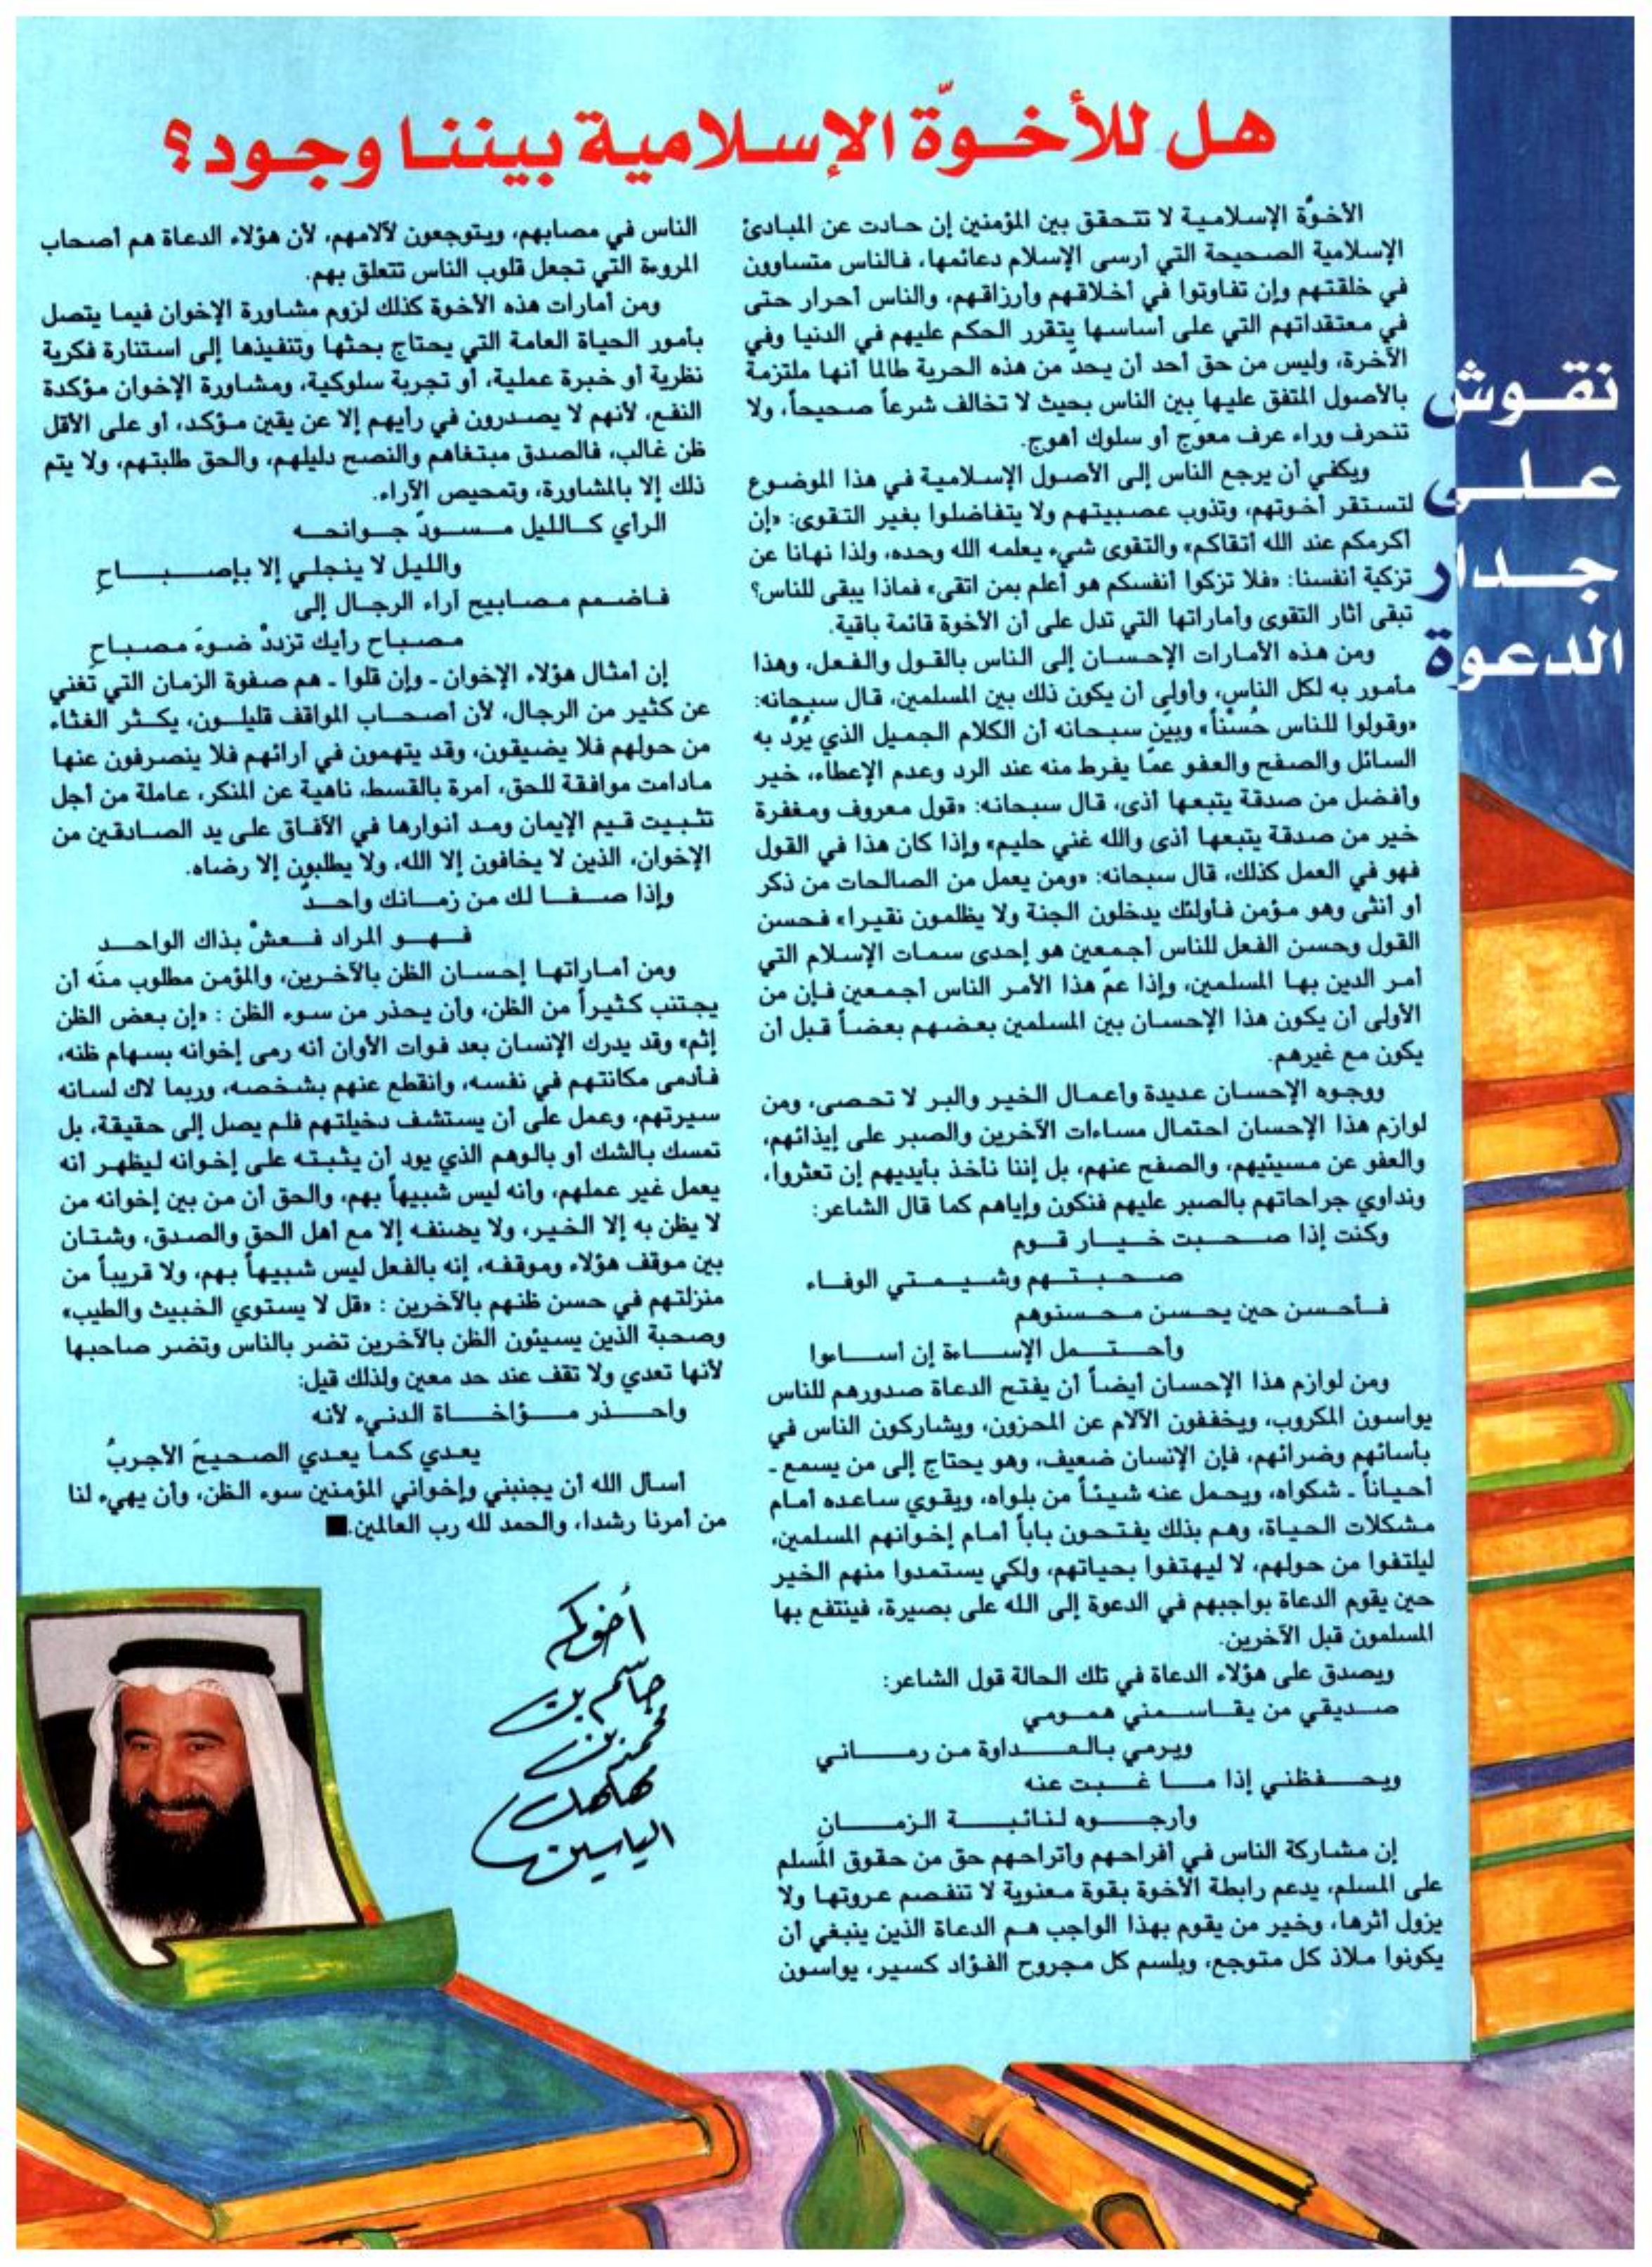 هل للأخوّة الإسلامية بيننا وجود؟
نقوش
على
جدار
الدعوة
الأخوّة الإسلامية لا تتحقق بين المؤمنين إن حادت عن المبادئ
الإسلامية الصحيحة التي أرسى الإسلام دعائمها، فالناس متساوون
في خلقتهم وإن تفاوتوا في أخلاقهم وأرزاقهم، والناس أحرار حتى
في معتقداتهم التي على أساسها يتقرر الحكم عليهم في الدنيا وفي
الآخرة، وليس من حق أحد أن يحدّ من هذه الحرية طالما أنها ملتزمة
بالأصول المتفق عليها بين الناس بحيث لا تخالف شرعاً صحيحاً، ولا
تنحرف وراء عرف معوّج أو سلوك أهوج.
ويكفي أن يرجع الناس إلى الأصول الإسلامية في هذا الموضوع
لتستقر أخوتهم، وتذوب عصبيتهم ولا يتفاضلوا بغير التقوى: «إن
أكرمكم عند الله أتقاكم» والتقوى شيء يعلمه الله وحده، ولذا نهانا عن
تزكية أنفسنا: «فلا تزكوا أنفسكم هو أعلم بمن اتقى» فماذا يبقى للناس؟
تبقى آثار التقوى وأماراتها التي تدل على أن الأخوة قائمة باقية.
ومن هذه الأمارات الإحسان إلى الناس بالقول والفعل، وهذا
مأمور به لكل الناس، وأولى أن يكون ذلك بين المسلمين، قال سبحانه:
«وقولوا للناس حُسْناً» وبيّن سبحانه أن الكلام الجميل الذي يُرّد به
السائل والصفح والعفو عمّا يفرط منه عند الرد وعدم الإعطاء، خير
وأفضل من صدقة يتبعها أذى، قال سبحانه: «قول معروف ومغفرة
خير من صدقة يتبعها أذى والله غني حليم» وإذا كان هذا في القول
فهو في العمل كذلك، قال سبحانه: «ومن يعمل من الصالحات من ذكر
أو أنثى وهو مؤمن فأولئك يدخلون الجنة ولا يظلمون نقيرا» فحسن
القول وحسن الفعل للناس أجمعين هو إحدى سمات الإسلام التي
أمر الدين بها المسلمين، وإذا عمّ هذا الأمر الناس أجمعين فإن من
الأولى أن يكون هذا الإحسان بين المسلمين بعضهم بعضاً قبل أن
يكون مع غيرهم.
ووجوه الإحسان عديدة وأعمال الخير والبر لا تحصى، ومن
لوازم هذا الإحسان احتمال مساءات الآخرين والصبر على إيذائهم،
والعفو عن مسيئيهم، والصفح عنهم، بل إننا نأخذ بأيديهم إن تعثروا،
ونداوي جراحاتهم بالصبر عليهم فنكون وإياهم كما قال الشاعر:
وكنت إذا صحبت خيار قوم
صحبتهم وشيمتي الوفاء
فأحسن حين يحسن محسنوهم
وأحتمل الإساءة إن أساءوا
ومن لوازم هذا الإحسان أيضاً أن يفتح الدعاة صدورهم للناس
يواسون المكروب، ويخففون الآلام عن المحزون، ويشاركون الناس في
بأسائهم وضرائهم، فإن الإنسان ضعيف، وهو يحتاج إلى من يسمع -
أحياناً - شكواه، ويحمل عنه شيئاً من بلواه، ويقوي ساعده أمام
مشكلات الحياة، وهم بذلك يفتحون باباً أمام إخوانهم المسلمين،
ليلتفوا من حولهم، لا ليهتفوا بحياتهم، ولكي يستمدوا منهم الخير
حين يقوم الدعاة بواجبهم في الدعوة إلى الله على بصيرة، فينتفع بها
المسلمون قبل الآخرين.
ويصدق على هؤلاء الدعاة في تلك الحالة قول الشاعر:
صديقي من يقاسمني همومي
ويرمي بالعداوة من رماني
ويحفظني إذا ما غبت عنه
وأرجوه لنائبة الزمانِ
إن مشاركة الناس في أفراحهم وأتراحهم حق من حقوق المسلم
على المسلم، يدعم رابطة الأخوة بقوة معنوية لا تنفصم عروتها ولا
يزول أثرها، وخير من يقوم بهذا الواجب هم الدعاة الذين ينبغي أن
يكونوا ملاذ كل متوجع، وبلسم كل مجروح الفؤاد كسير، يواسون
الناس في مصابهم، ويتوجعون لآلامهم، لأن هؤلاء الدعاة هم أصحاب
المروءة التي تجعل قلوب الناس تتعلق بهم.
ومن أمارات هذه الأخوة كذلك لزوم مشاورة الإخوان فيما يتصل
بأمور الحياة العامة التي يحتاج بحثها وتنفيذها إلى استنارة فكرية
نظرية أو خبرة عملية، أو تجربة سلوكية، ومشاورة الإخوان مؤكدة
النفع، لأنهم لا يصدرون في رأيهم إلا عن يقين مؤكد، أو على الأقل
ظن غالب، فالصدق مبتغاهم والنصح دليلهم، والحق طلبتهم، ولا يتم
ذلك إلا بالمشاورة، وتمحيص الآراء.
الرأي كالليل مسودّ جوانحه
والليل لا ينجلي إلا بإصباحِ
فاضمم مصابيح آراء الرجال إلى
مصباح رأيك تزددْ ضوءَ مصباحِ
إن أمثال هؤلاء الإخوان - وإن قلوا - هم صفوة الزمان التي تُغني
عن كثير من الرجال، لأن أصحاب المواقف قليلون، يكثر الغثاء
من حولهم فلا يضيقون، وقد يتهمون في آرائهم فلا ينصرفون عنها
مادامت موافقة للحق، آمرة بالقسط، ناهية عن المنكر، عاملة من أجل
تثبيت قيم الإيمان ومد أنوارها في الآفاق على يد الصادقين من
الإخوان، الذين لا يخافون إلا الله، ولا يطلبون إلا رضاه.
وإذا صفا لك من زمانك واحدٌ
فهو المراد فعشْ بذاك الواحد
ومن أماراتها إحسان الظن بالآخرين، والمؤمن مطلوب منه أن
يجتنب كثيراً من الظن، وأن يحذر من سوء الظن : «إن بعض الظن
إثم» وقد يدرك الإنسان بعد فوات الأوان أنه رمى إخوانه بسهام ظنه،
فأدمى مكانتهم في نفسه، وانقطع عنهم بشخصه، وربما لاك لسانه
سيرتهم، وعمل على أن يستشف دخيلتهم فلم يصل إلى حقيقة، بل
تمسك بالشك أو بالوهم الذي يود أن يثبته على إخوانه ليظهر أنه
يعمل غير عملهم، وأنه ليس شبيهاً بهم، والحق أن من بين إخوانه من
لا يظن به إلا الخير، ولا يضنفه إلا مع أهل الحق والصدق، وشتان
بين موقف هؤلاء وموقفه، إنه بالفعل ليس شبيهاً بهم، ولا قريباً من
منزلتهم في حسن ظنهم بالآخرين : «قل لا يستوي الخبيث والطيب»
وصحبة الذين يسيئون الظن بالآخرين تضر بالناس وتضر صاحبها
لأنها تعدي ولا تقف عند حد معين ولذلك قيل:
واحذر مؤاخاة الدنيء لأنه
يعدي كما يعدي الصحيحَ الأجربُ
أسأل الله أن يجنبني وإخواني المؤمنين سوء الظن، وأن يهيء لنا
من أمرنا رشدا، والحمد لله رب العالمين.■
أخوكم
جاسم بن
محمد بن
مهلهل
الياسين